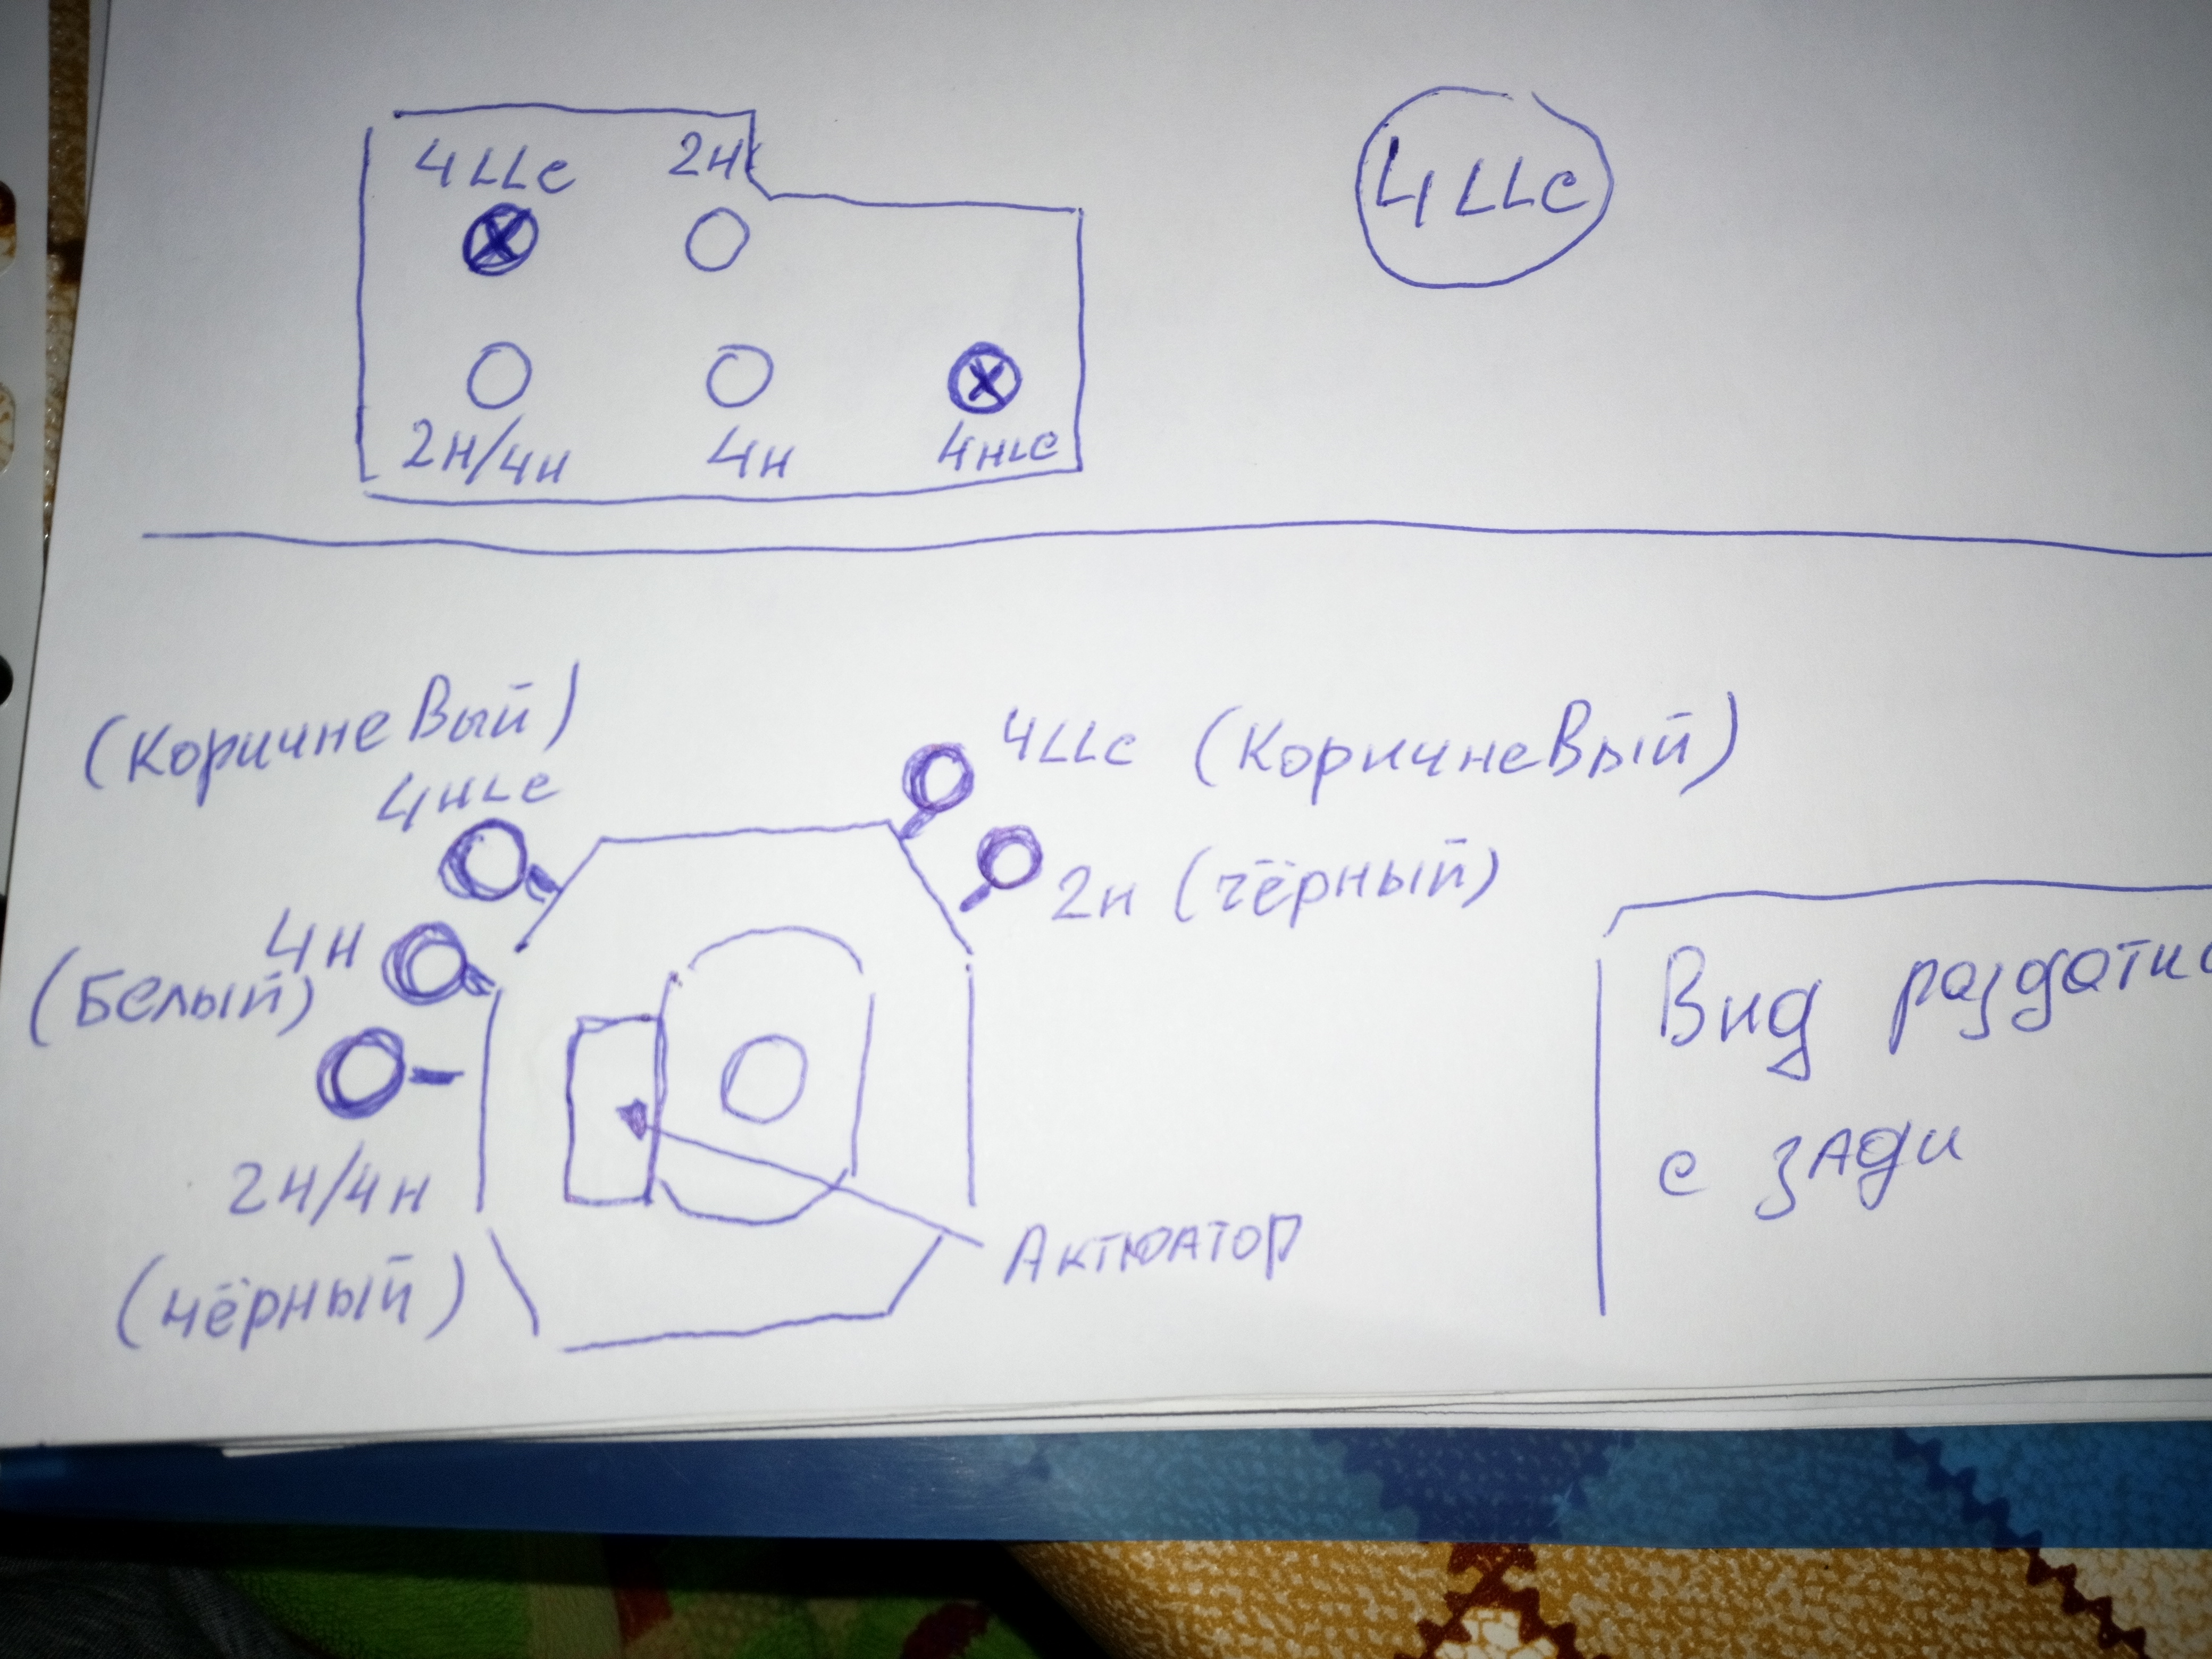 4LLc 2H
4LLc
2H/4H 4H 4HLc
(Коричневый)
4HLc
4LLc (Коричневый)
2H (чёрный)
4H
(Белый)
2H/4H
(чёрный)
Актюатор
Вид раздатк
с зади